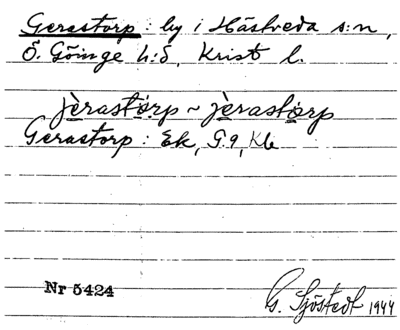 Gerastorp : by i Hästveda s:n,
Ö. Göinge h:d, Krist l.
jèrastòrp ~ jèrastòrp
Gerastorp : Ek, G.9, Kb
Nr 5424
G. Sjöstedt 1944